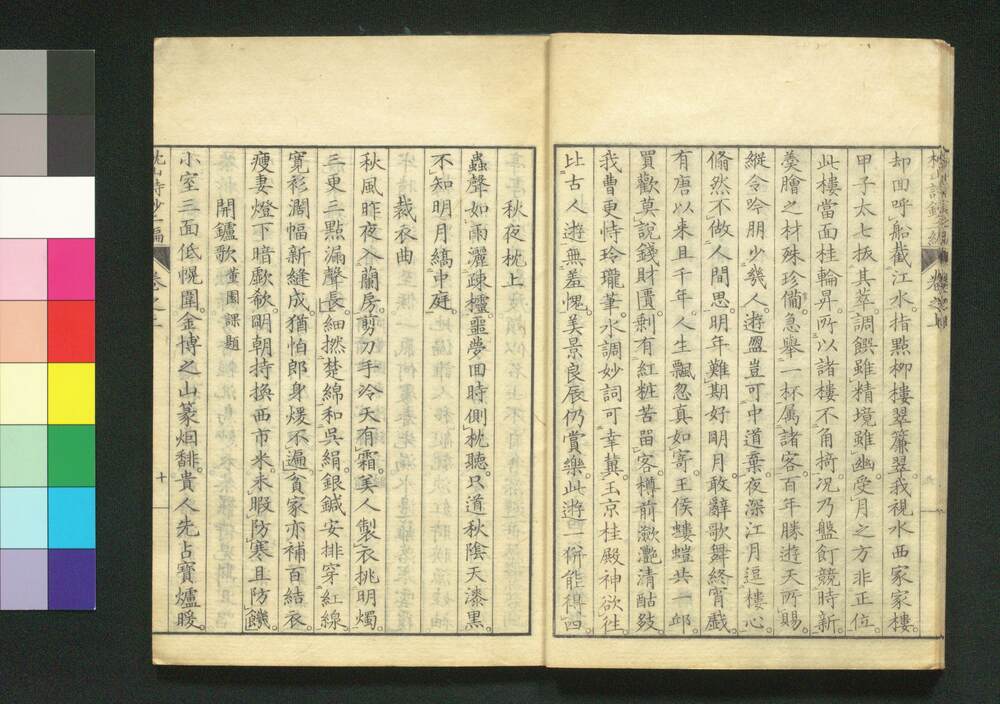 却回呼船截江水。指點柳樓翠簾翠。我視水西家家樓。
甲子太七拔其萃。調饌雖精境雖幽。受月之方非正位。
此樓當面桂輪昇。所以諸樓不角掎。况乃盤飣競時新。
羹膾之材殊珍備。急舉一杯屬諸客。百年勝遊天所賜。
縱令吟朋少幾人。遊盟豈可中道棄。夜深江月逗樓心。
翛然不做人間思。明年難期好明月。敢辭歌舞終宵戲。
有唐以来且千年。人生飄忽真如寄。王侯螻螘共一邱。
買歡莫説錢財匱。剩有紅粧苦畱客。樽前瀲灧清酤致。
我曹更恃玲瓏筆。水調妙詞可幸冀。玉京桂殿神欲往。
比古人遊無羞愧。美景良辰仍賞樂。此遊一倂能得四。
秋夜枕上
蟲聲如雨灑疎櫺。噩夢回時側枕聽。只道秋陰天漆黒。
不知明月縞中庭。
裁衣曲
秋風昨夜入蘭房。剪刀手冷天有霜。美人製衣挑明燭。
三更三點漏聲長。細撚楚綿和吳絹。銀鍼安排穿紅線。
寛衫濶幅新縫成。猶怕郎身煖不遍。貧家亦補百結衣。
瘦妻燈下暗歔欷。明朝持換西市米。未暇防寒且防饑。
開鑪歌 菫園課題
小室三面低幌圍。金博之山篆烟馡。貴人先占寳爐暖。
枕山詩鈔二編 卷之二 十